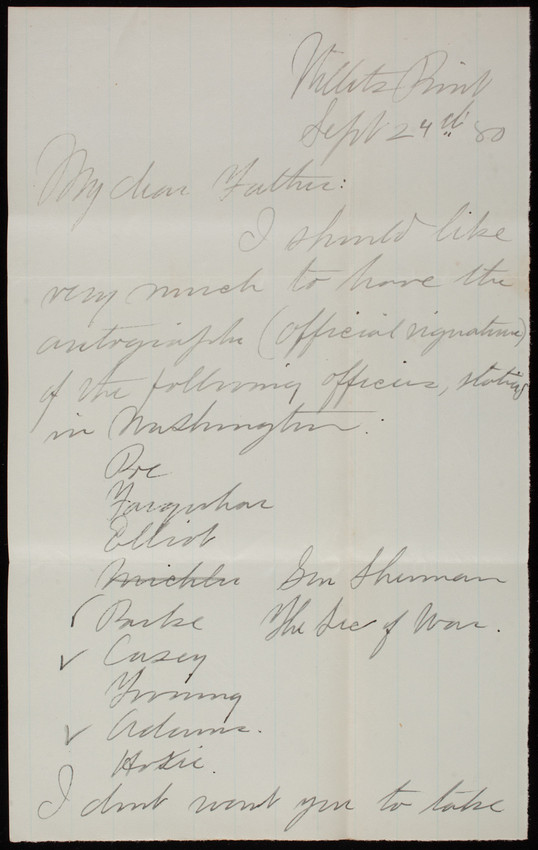 Willets Point
Sept 24th 80
My dear Father:
I should like
very much to have the
autographs (official signature)
of the following officers,
in Washington:
Poe
Farquhar
Elliot
Michler Gen Sherman
Parke The Sec of War.
Casey
Young
Adams.
Hoxie.
I dont want you to take